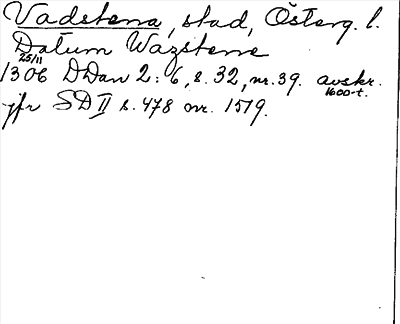 Vadstena, stad, Österg. l.
Datum Wazstene
25/11
1306 DDan 2:6, s. 32, nr. 39. avskr. 1600-t.
jfr SD II s. 478 nr. 1519.